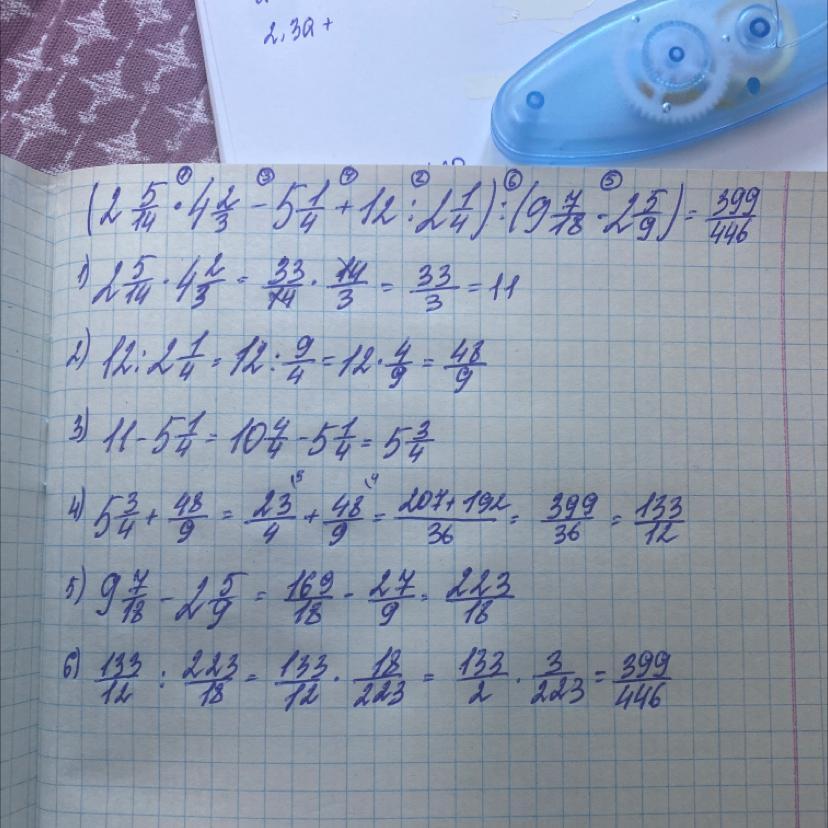 2,3a +
① ③ ④ ② ⑥ ⑤
(2 5/14 · 4 2/3 - 5 1/4 + 12 : 2 1/4) : (9 7/18 - 2 5/9) = 399/446
1) 2 5/14 · 4 2/3 = 33/14 · 14/3 = 33/3 = 11
2) 12 : 2 1/4 = 12 : 9/4 = 12 · 4/9 = 48/9
3) 11 - 5 1/4 = 10 4/4 - 5 1/4 = 5 3/4
4) 5 3/4 + 48/9 = 23/4 + 48/9 = 207+192/36 = 399/36 = 133/12
5) 9 7/18 - 2 5/9 = 169/18 - 27/9 = 223/18
6) 133/12 : 223/18 = 133/12 · 18/223 = 133/2 · 3/223 = 399/446